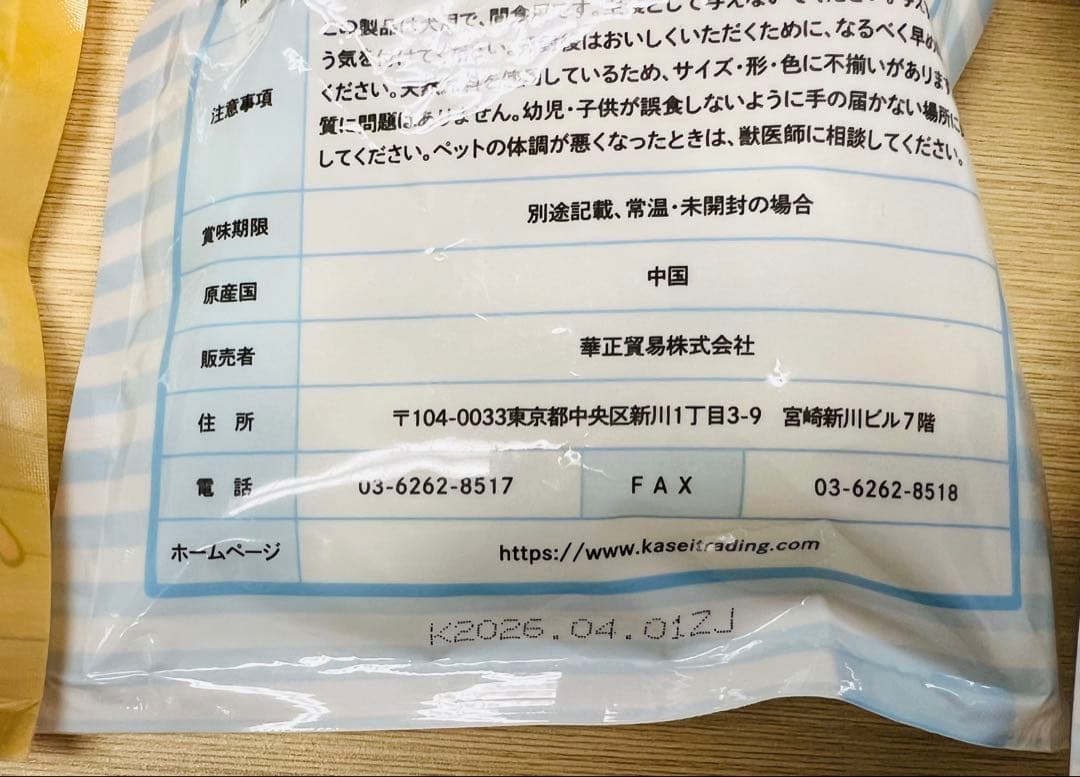 この製品は犬用で、間食用です。主食として与えないでください。
う気を付けてください。開封後はおいしくいただくために、なるべく早め
注意事項
ください。天然原料を使用しているため、サイズ・形・色に不揃いがあります
質に問題はありません。幼児・子供が誤食しないように手の届かない場所に
してください。ペットの体調が悪くなったときは、獣医師に相談してください。
賞味期限 別途記載、常温・未開封の場合
原産国 中国
販売者 華正貿易株式会社
住 所 〒104-0033東京都中央区新川1丁目3-9 宮崎新川ビル7階
電 話 03-6262-8517 FAX 03-6262-8518
ホームページ https://www.kaseitrading.com
K2026.04.01ZJ